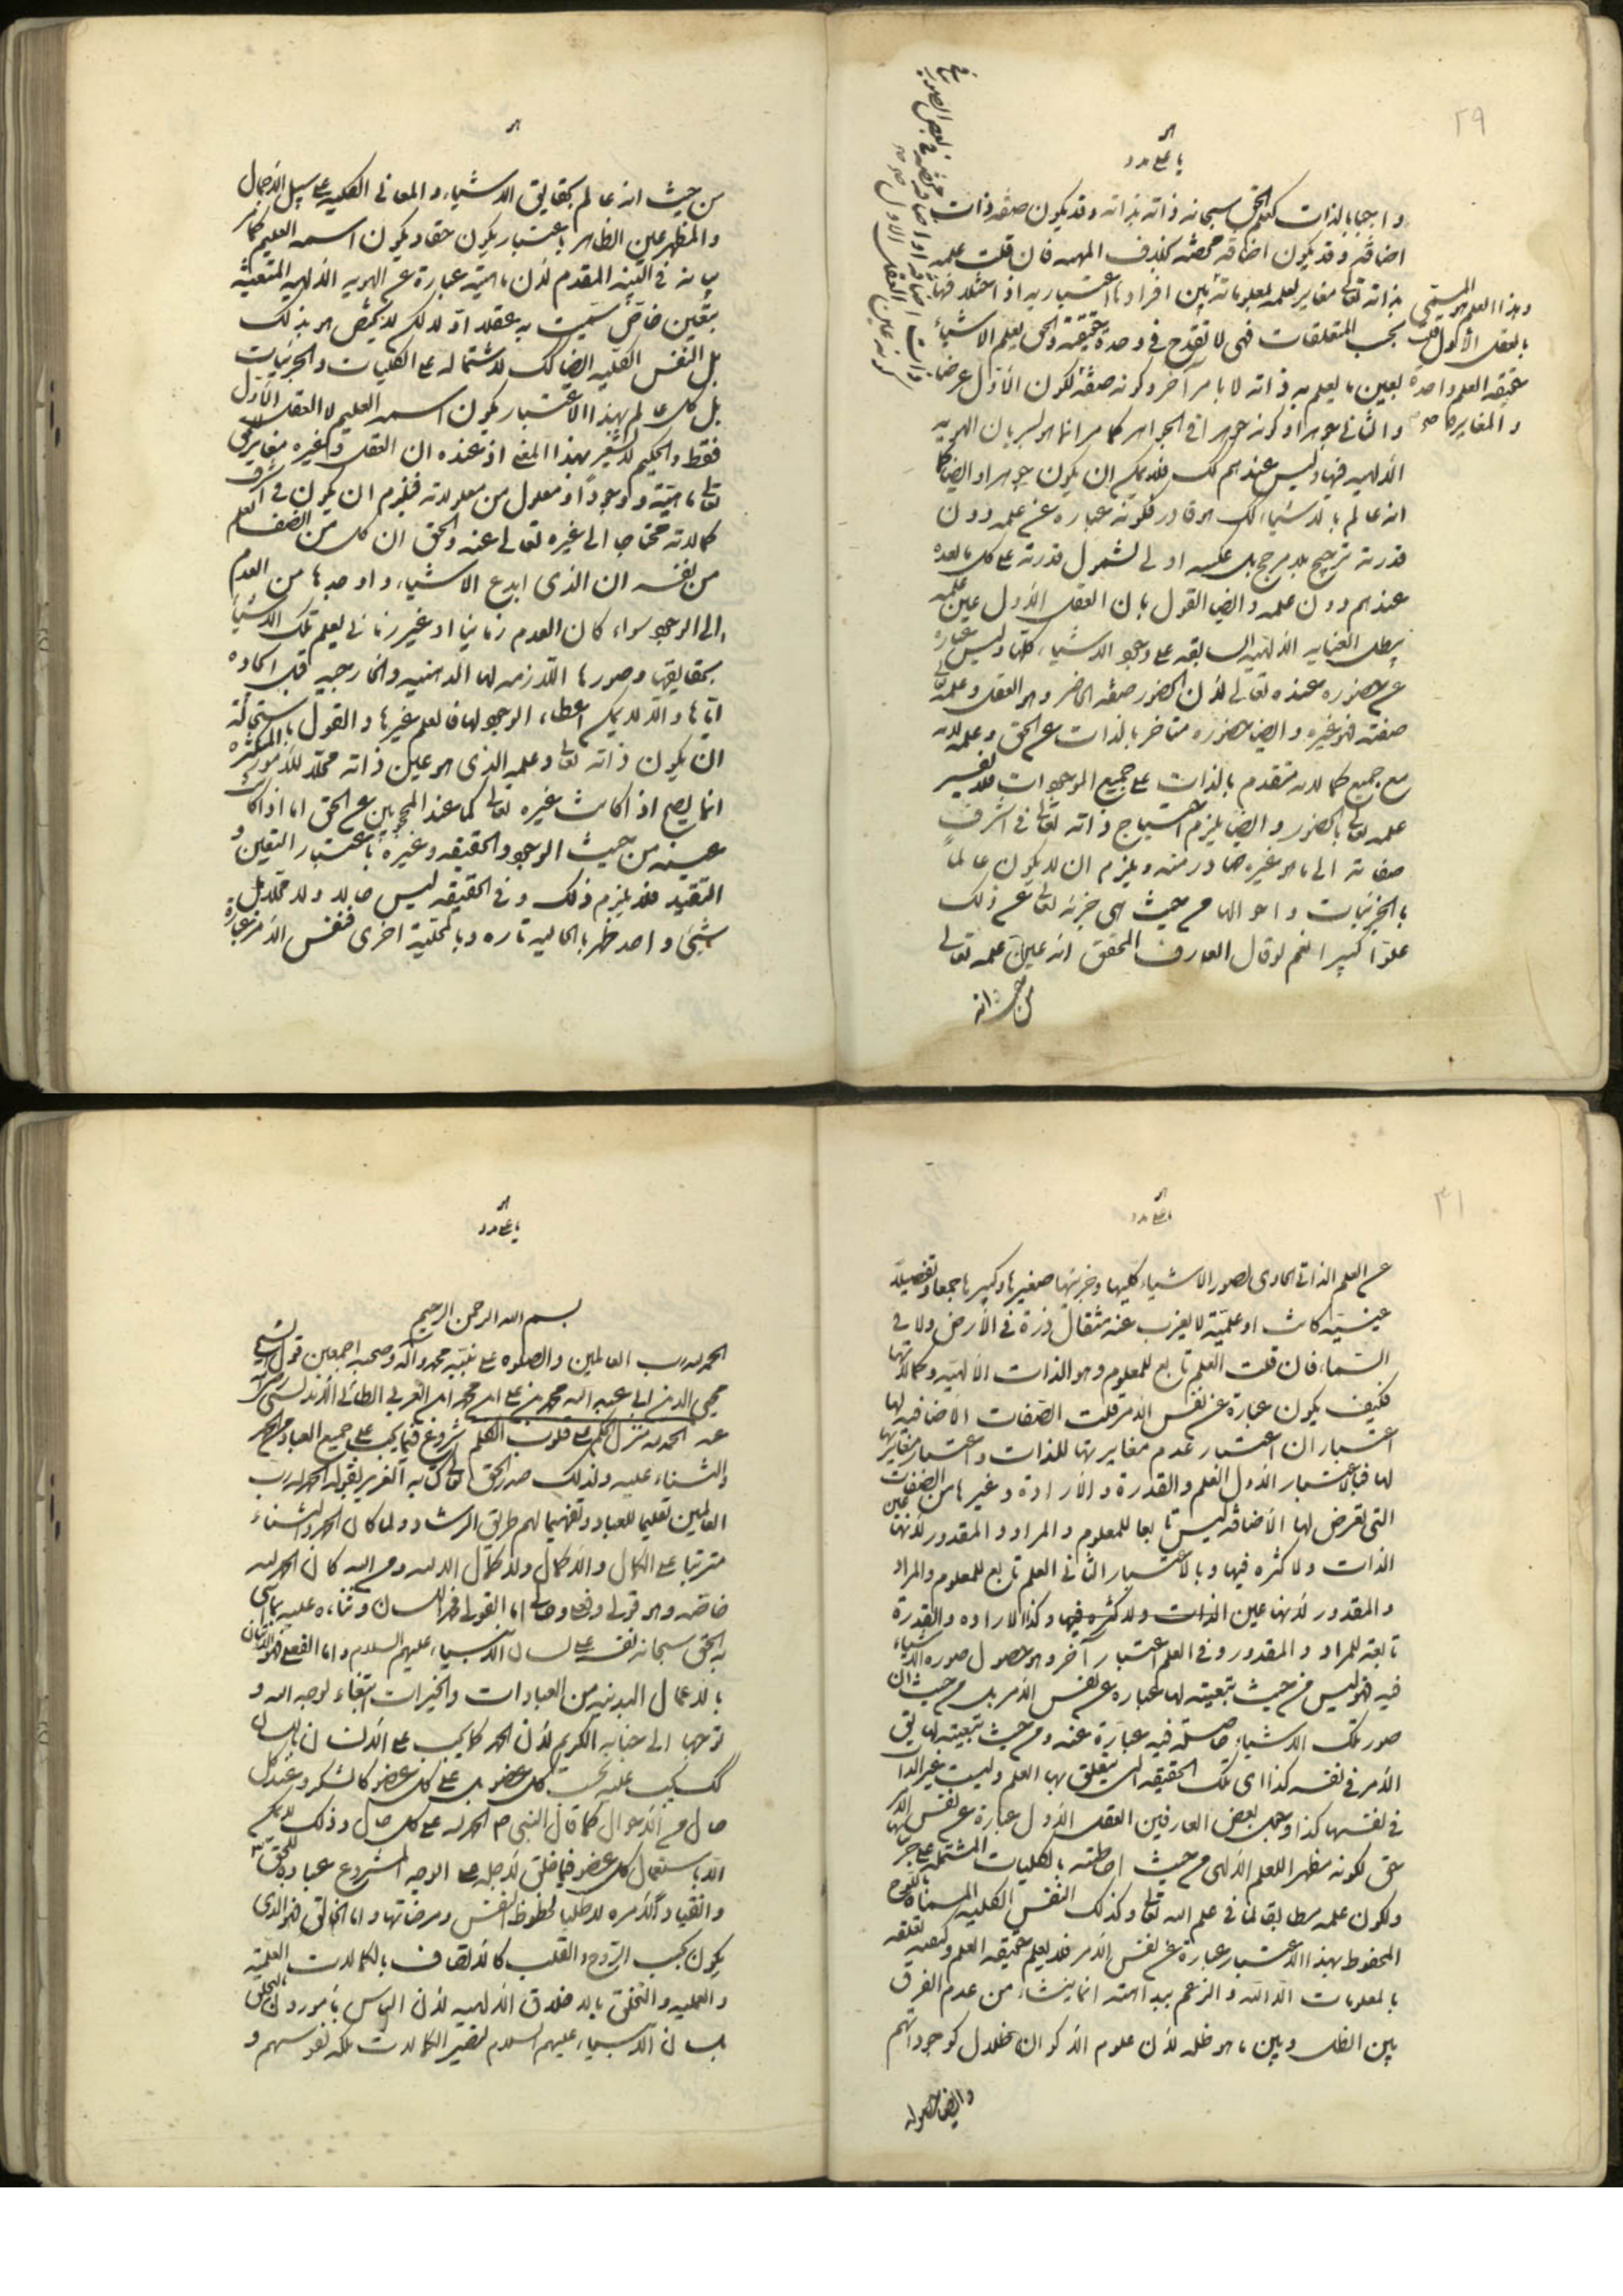 ٢٩
واجبا بالذات كعلم الحق سبحانه ذاته بذاته وقد يكون صفة ذات
اضافة وقد يكون اضافة محضة كذا فى المهمه فان قلت علمه
بذاته تعالى مغاير لعلمه بمعلوماته
بحسب المتعلقات فهى لا تقدح فى وحدة حقيقة والحق يعلم الاشياء
بعين ما يعلم به ذاته لا بامر آخر وكونه صفة لكون الأول عرضا
والثانى جوهرا وكونه جوهرا فى الجواهر كما مر انما هو لسريان الهوية
الالهية فيها وليس عندهم كك فلا يمكن ان يكون جوهرا وايضا كما
انه عالم بالاشياء كك هو قادر فكونه عبارة عن علمه دون
قدرته ترجيح بلا مرجح بل عكسه اولى لشمول قدرته على كل ما بعده
عندهم دون علمه وايضا القول بان العقل الأول عين علمه
يبطل العناية الالهية السابقة على وجود الاشياء كلها وليس عبارة
عن حضوره عنده تعالى لأن الحضور صفة الحاضر وهو العقل وعلمه تعالى
صفته فهو غيره وايضا حضوره متاخر بالذات عن الحق وعلمه لانه
مع جميع كمالاته متقدم بالذات على جميع الموجودات فلا يفسر
علمه تعالى بالحضور وايضا يلزم احتياج ذاته تعالى فى اشرف
صفاته الى ما هو غيره صادر منه ويلزم ان لا يكون عالما
بالجزئيات واحوالها من حيث هى جزئية تعالى عن ذلك
علوا كبيرا نعم لو قال العارف المحقق انه عين علمه تعالى
من حيث انه
وهذا العلم هو المسمى
بالعقل الأول قلت
حقيقة العلم واحدة
والمغايرة
من حيث انه عالم بحقايق الاشياء والمعانى الكلية على سبيل الاجمال
والمظهر عين الظاهر باعتبار يكون حقا ويكون اسمه العليم كما مر
بيانه فى التنبيه المقدم لأن ماهيته عبارة عن الهوية الالهية المتعينة
بتعين خاص سميت به عقلا اولا لكن لا يختص هو بذلك
بل النفس الكلية ايضا كك لاشتمالها على الكليات والجزئيات
بل كل عالم بهذا الاعتبار يكون اسمه العليم لا العقل الأول
فقط والحكيم لا يشعر بهذا المعنى اذ عنده ان العقل وغيره مغاير للحق
تعالى ماهية ووجودا ومعلول من معلولاته فيلزم ان يكون فى اشرف
كمالاته محتاجا الى غيره تعالى عنه والحق ان كل من انصف يعلم
من نفسه ان الذى ابدع الاشياء واوجدها من العدم
الى الوجود سواء كان العدم زمانيا او غير زمانى يعلم تلك الاشياء
بحقايقها وصورها اللازمة لها الذهنية والخارجية قبل ايجاده
اياها والا لا يمكن اعطاء الوجود لها فالعلم غيرها والقول باستحالة
ان يكون ذاته تعالى وعلمه الذى هو عين ذاته محلا للأمور المتكثرة
انما يصح اذا كانت غيره تعالى كما عند المحجوبين عن الحق اما اذا كانت
عينه من حيث الوجود والحقيقة وغيره باعتبار التعين و
التقيد فلا يلزم ذلك وفى الحقيقة ليس حالا ولا محلا بل
شىء واحد ظهر بالحالية تارة وبالمحلية اخرى فنفس الأمر عبارة
٣١
عن العلم الذاتى الحاوى لصور الاشياء كليها وجزئيها صغيرها وكبيرها جمعا وتفصيلا
عينية كانت او علمية لا يعزب عنه مثقال ذرة فى الأرض ولا فى
السماء فان قلت العلم تابع للمعلوم وهو الذات الالهية وكمالاتها
فكيف يكون عبارة عن نفس الأمر قلت الصفات الاضافية لها
اعتباران اعتبار عدم مغايرتها للذات واعتبار مغايرتها
لها فبالاعتبار الأول العلم والقدرة والارادة وغيرها من الصفات
التى تعرض لها الاضافة ليس تابعا للمعلوم والمراد والمقدور لأنها عين
الذات ولا كثرة فيها وبالاعتبار الثانى العلم تابع للمعلوم والمراد
والمقدور لأنها عين الذات ولا كثرة فيها وكذا الارادة والقدرة
تابعة للمراد والمقدور وفى العلم اعتبار آخر وهو حصول صورة الاشياء
فيه فهو ليس من حيث تبعيته لها عبارة عن نفس الأمر بل من حيث ان
صور تلك الاشياء حاصلة فيه عبارة عنه ومن حيث تبعيته لها يقال
الأمر فى نفسه كذا اى تلك الحقيقة التى يتعلق بها العلم وليست غير الذات
فى نفسها كذا وجعل بعض العارفين العقل الأول عبارة عن نفس الأمر
حق لكونه مظهرا للعلم الالهى من حيث احاطته بالكليات المشتملة على جزئياتها
ولكون علمه مطابقا لما فى علم الله تعالى وكذلك النفس الكلية المسماة باللوح
المحفوظ بهذا الاعتبار عبارة عن نفس الأمر فلا يعلم حقيقة العلم وكيفية تعلقه
بالمعلومات الا الله والزعم ببداهته انما ينشاء من عدم الفرق
بين الظل وبين ما هو ظله لأن علوم الأكوان ظلال كوجوداتهم
وايضا حصوله
بسم الله الرحمن الرحيم
الحمد لله رب العالمين والصلوة على نبيه محمد وآله وصحبه اجمعين قول الشيخ
محيى الدين ابى عبد الله محمد بن على ابن محمد ابن العربى الطائى الأندلسى رضى الله
عنه الحمد لله منزل الحكم على قلوب الكلم شروع فيما يجب على جميع العباد من الحمد
والثناء عليه ولذلك صدر الحق تعالى كتابه العزيز بقوله الحمد لله رب
العالمين تعليما للعباد وتفهيما لهم طريق الرشاد ولما كان الحمد والثناء
مترتبا على الكمال ولا كمال الا لله ومن الله كان الحمد لله
خاصة وهو قولى وفعلى وحالى اما القولى فحمد اللسان وثناءه عليه بما اثنى
به الحق سبحانه نفسه على لسان الأنبياء عليهم السلام واما الفعلى فهو الاتيان
بالاعمال البدنية من العبادات والخيرات ابتغاء لوجه الله و
توجها الى جنابه الكريم لأن الحمد كما يجب على الانسان باللسان
كك يجب عليه بحسب كل عضو بل على كل عضو كالشكر وعند كل
حال من الأحوال كما قال النبى ص الحمد لله على كل حال وذلك لا يمكن
الا باستعمال كل عضو فيما خلق لأجله على الوجه المشروع عبادة للحق تعالى
وانقيادا لأمره لا طلبا لحظوظ النفس ومرضاتها واما الحالى فهو الذى
يكون بحسب الروح والقلب كالاتصاف بالكمالات العلمية
والعملية والتخلق بالاخلاق الالهية لأن الناس مأمورون بالتخلق
بلسان الأنبياء عليهم السلام لتصير الكمالات ملكة نفوسهم و